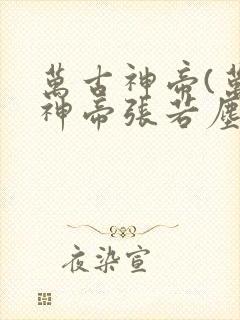 萬古神帝(萬
神帝張若塵
夜染宣